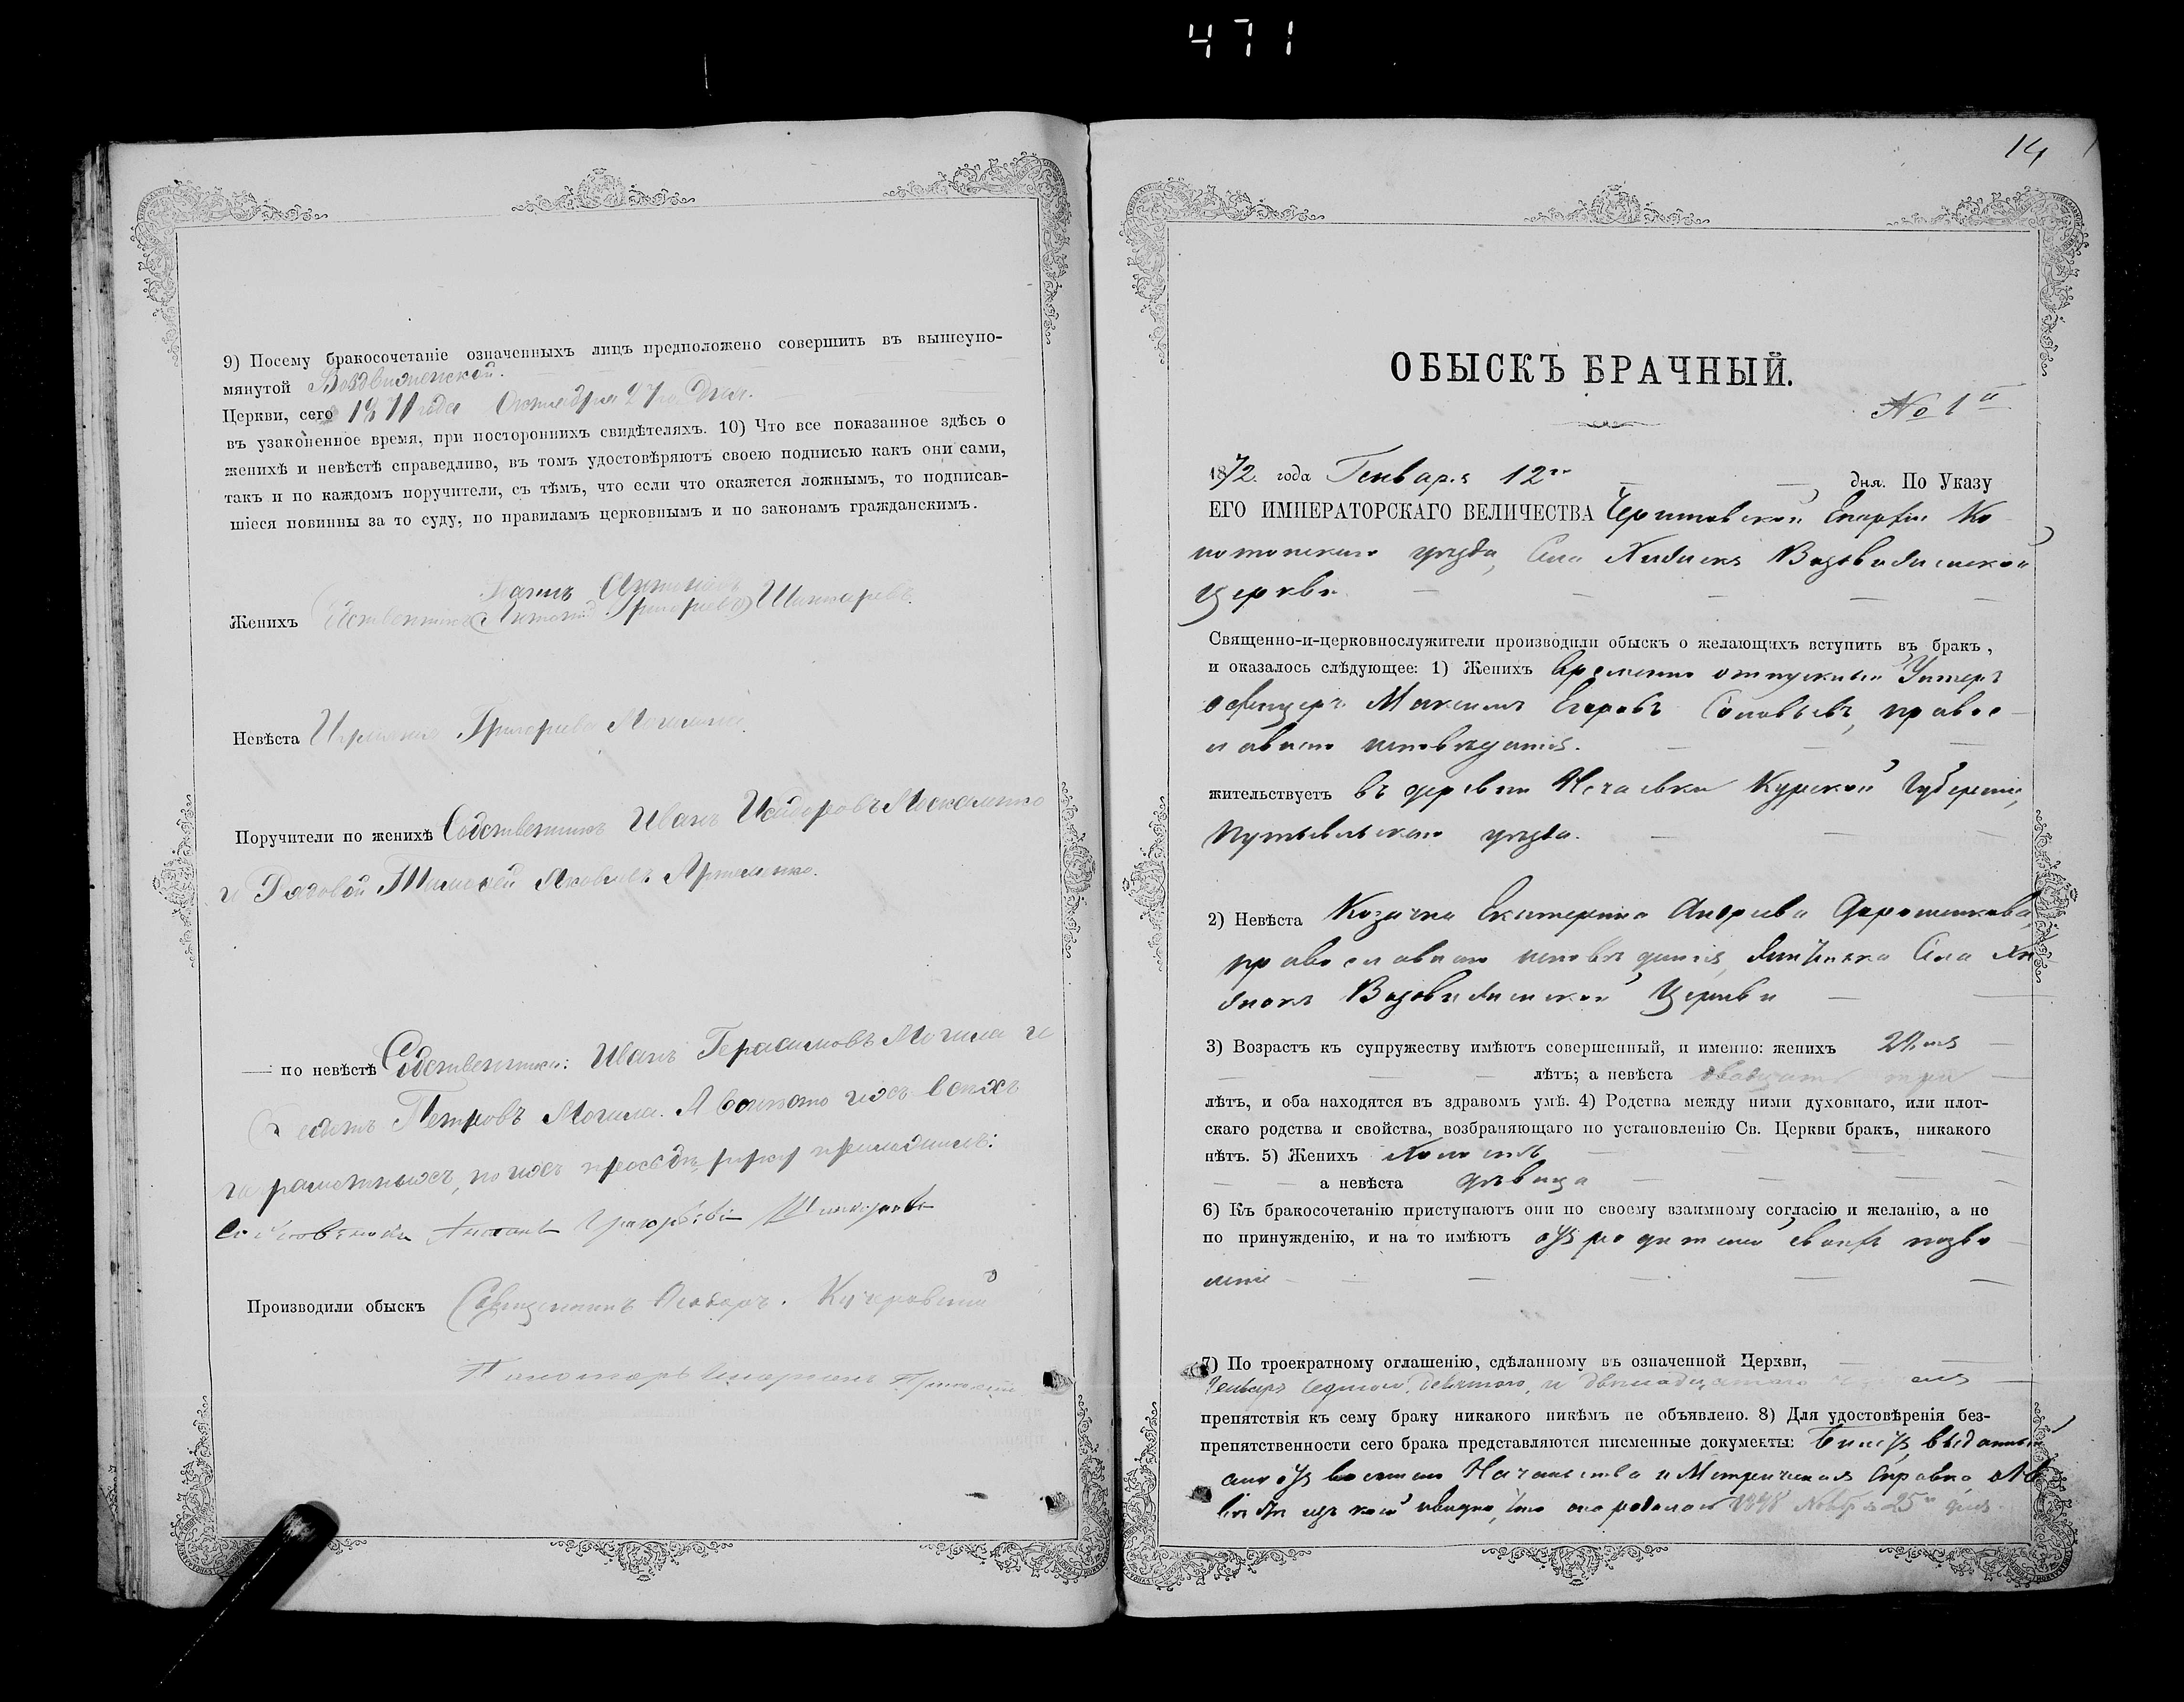 471
9) Посему бракосочетаніе означенныхъ лицъ предположено совершить въ вышеупо-
мянутой Воздвиженской.
Церкви, сего 1871 года Октября 27го дня.
въ узаконенное время, при постороннихъ свидѣтеляхъ. 10) Что все показанное здѣсь о
женихѣ и невѣстѣ справедливо, въ томъ удостовѣряютъ своею подписью какъ они сами,
такъ и по каждомъ поручители, съ тѣмъ, что если что окажется ложнымъ, то подписав-
шіеся повинны за то суду, по правиламъ церковнымъ и по законамъ гражданскимъ.
Женихъ Григорьевъ
Невѣста Григорьева Могилина
Поручители по женихѣ Собственникъ Иванъ Исидоровъ Москаленко
и Рядовой Тимофей Яковлевъ Артеменко.
— по невѣстѣ Собственники: Иванъ Герасимовъ Могила и
Петровъ Могила. А вместо ихъ всехъ
неграмотныхъ, по ихъ прозбѣ, руку приложилъ:
Производили обыскъ Священникъ Феодоръ Кучеровскій
Пономарь
14
ОБЫСКЪ БРАЧНЫЙ.
№ 1й
1872. года Генваря 12го дня. По Указу
ЕГО ИМПЕРАТОРСКАГО ВЕЛИЧЕСТВА Черниговской Епархіи Ко
нотопскаго уѣзда, Села Хижокъ Воздвиженской
Церкви
Священно-и-церковнослужители производили обыскъ о желающихъ вступить въ бракъ,
и оказалось слѣдующее: 1) Женихъ временно отпускный Унтеръ
офицеръ Максимъ Егоровъ Соловьевъ, право
славнаго исповѣданія.
жительствуетъ въ деревни Нечаевки Курской Губерніи,
Путивльскаго уѣзда.
2) Невѣста Козачка Екатерина Андреева Дорошенкова,
православнаго исповѣданія, Села Хи
жокъ Воздвиженской Церкви
3) Возрастъ къ супружеству имѣютъ совершенный, и именно: женихъ
лѣтъ; а невѣста двадцать три
лѣтъ, и оба находятся въ здравомъ умѣ. 4) Родства между ними духовнаго, или плот-
скаго родства и свойства, возбраняющаго по установленію Св. Церкви бракъ, никакого
нѣтъ. 5) Женихъ Холостъ
а невѣста дѣвица
6) Къ бракосочетанію приступаютъ они по своему взаимному согласію и желанію, а не
по принужденію, и на то имѣютъ отъ родителей своихъ позво
леніе
7) По троекратному оглашенію, сдѣланному въ означенной Церкви,
Генваря седмого, девятого, и двенадцатого
препятствія къ сему браку никакого никѣмъ не объявлено. 8) Для удостовѣренія без-
препятственности сего брака представляются писменные документы: Билетъ, выданный
ему отъ Начальства и Метрическая Справка о
изъ коей видно, что она родилась 1848 Ноября 25го дня.